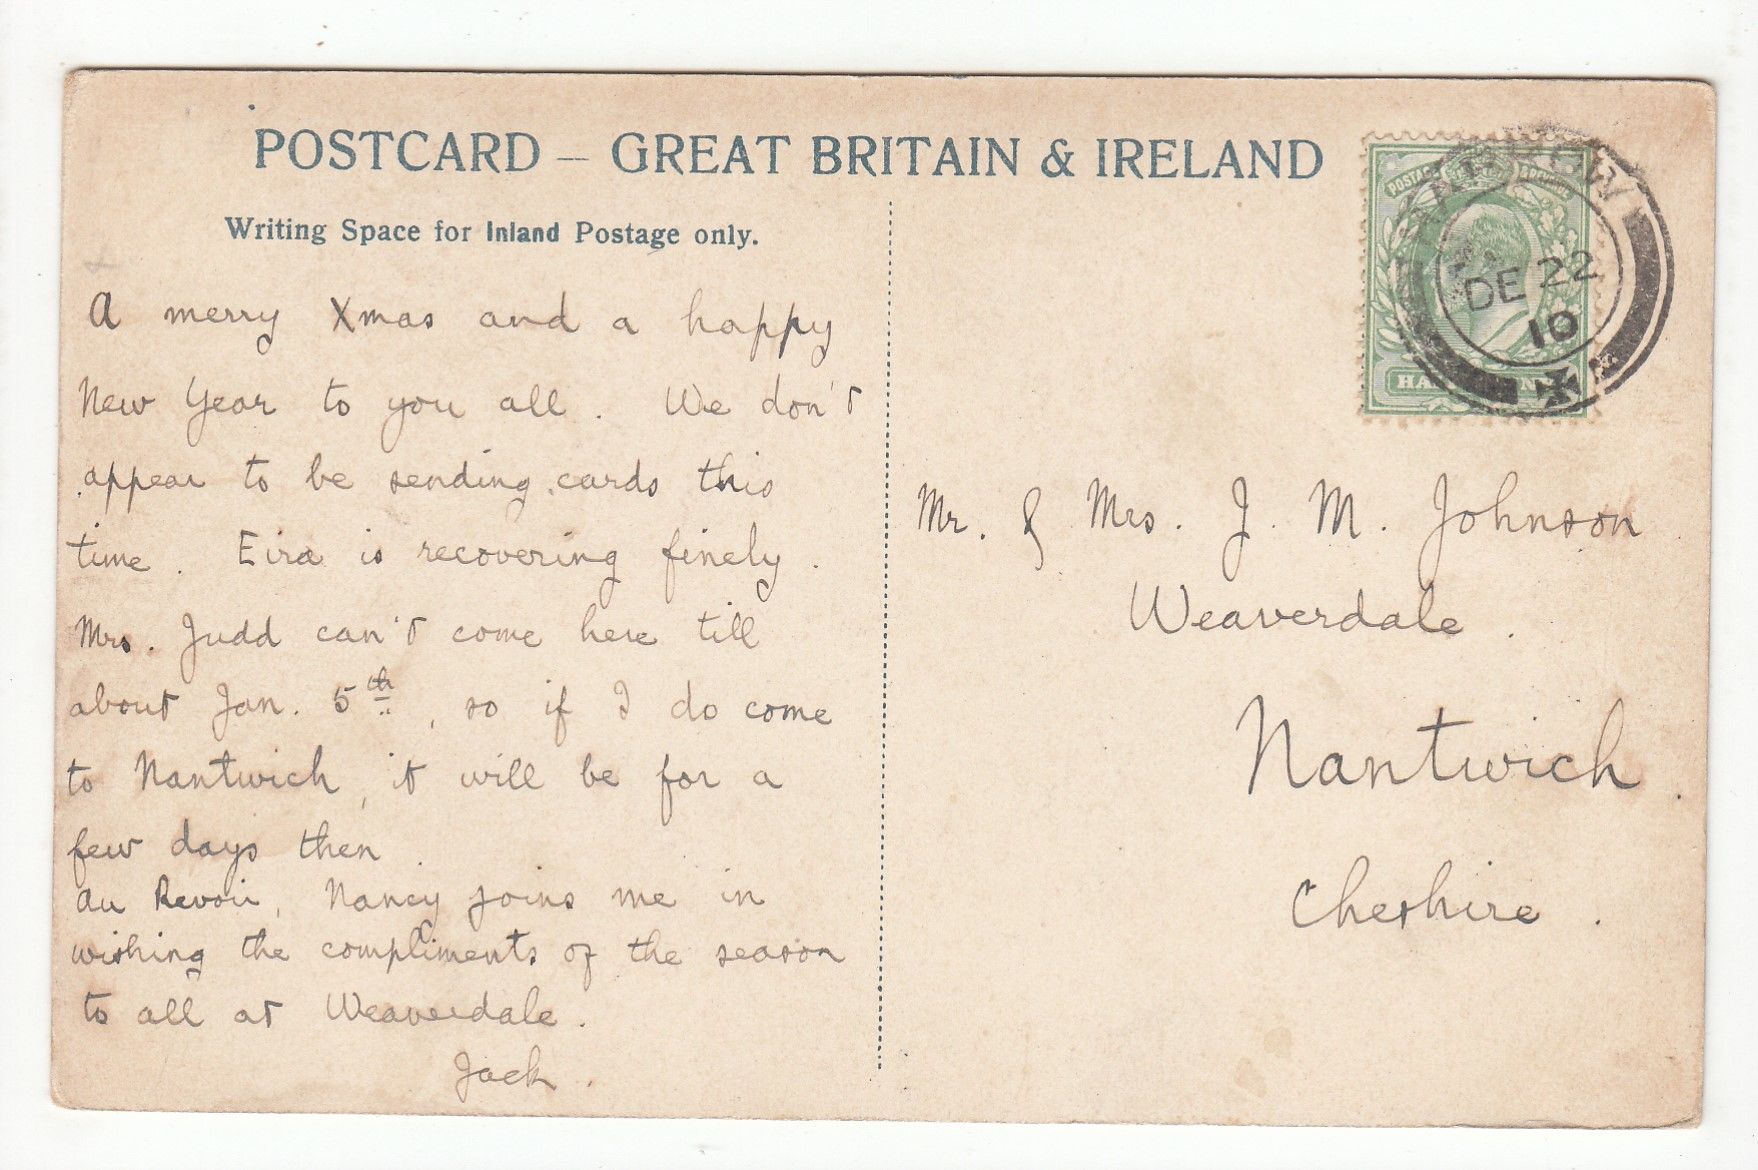 POSTCARD – GREAT BRITAIN & IRELAND
Writing Space for Inland Postage only.
A merry Xmas and a happy
New Year to you all. We don't
appear to be sending cards this
time. Eira is recovering finely.
Mrs. Judd can't come here till
about Jan. 5th, so if I do come
to Nantwich, it will be for a
few days then.
Au Revoir, Nancy joins me in
wishing the compliments of the season
to all at Weaverdale.
Jack.
POSTAGE
DE 22
10
Mr. & Mrs. J. M. Johnson
Weaverdale.
Nantwich.
Cheshire.